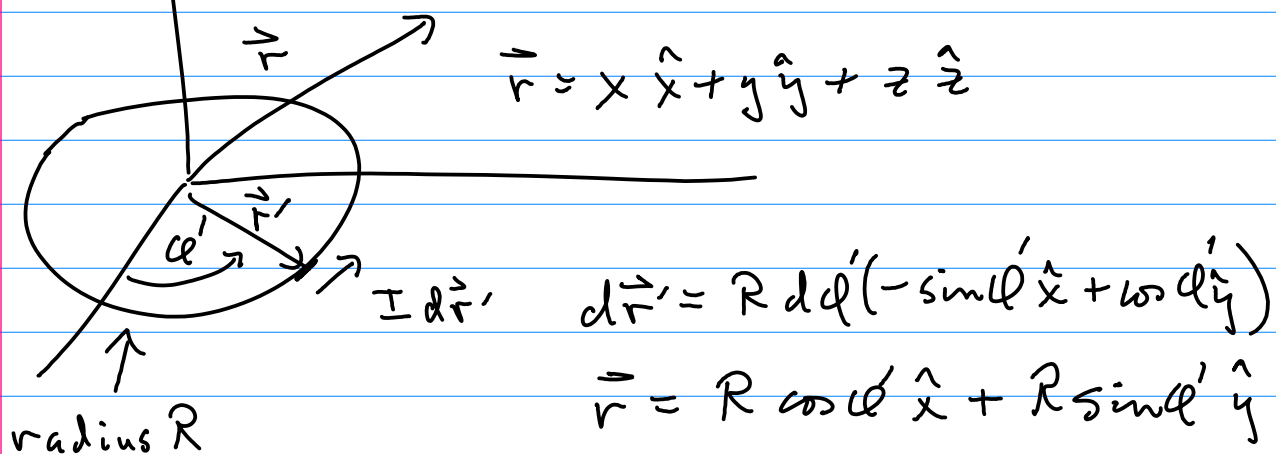 r⃗
r⃗ = x x̂ + y ŷ + z ẑ
r⃗′
φ′
I dr⃗′
dr⃗′ = R dφ′(-sinφ′ x̂ + cosφ′ ŷ)
r⃗ = R cosφ′ x̂ + R sinφ′ ŷ
radius R